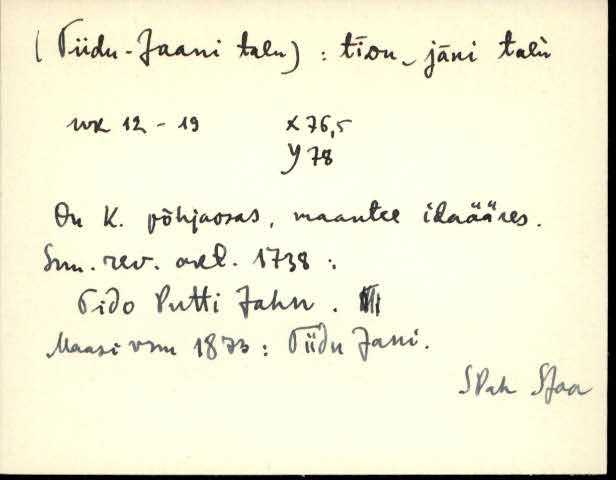 (Tiidu-Jaani talu) : tīδu‿jāni talù
wk 12 - 19 x 76,5
y 78
On K. põhjaosas, maantee idaääres.
Snu. rev. 1738 :
Tido Putti Jahn.
Maasi vmu 1873 : Tiidu Jani.
SPäh SJaa